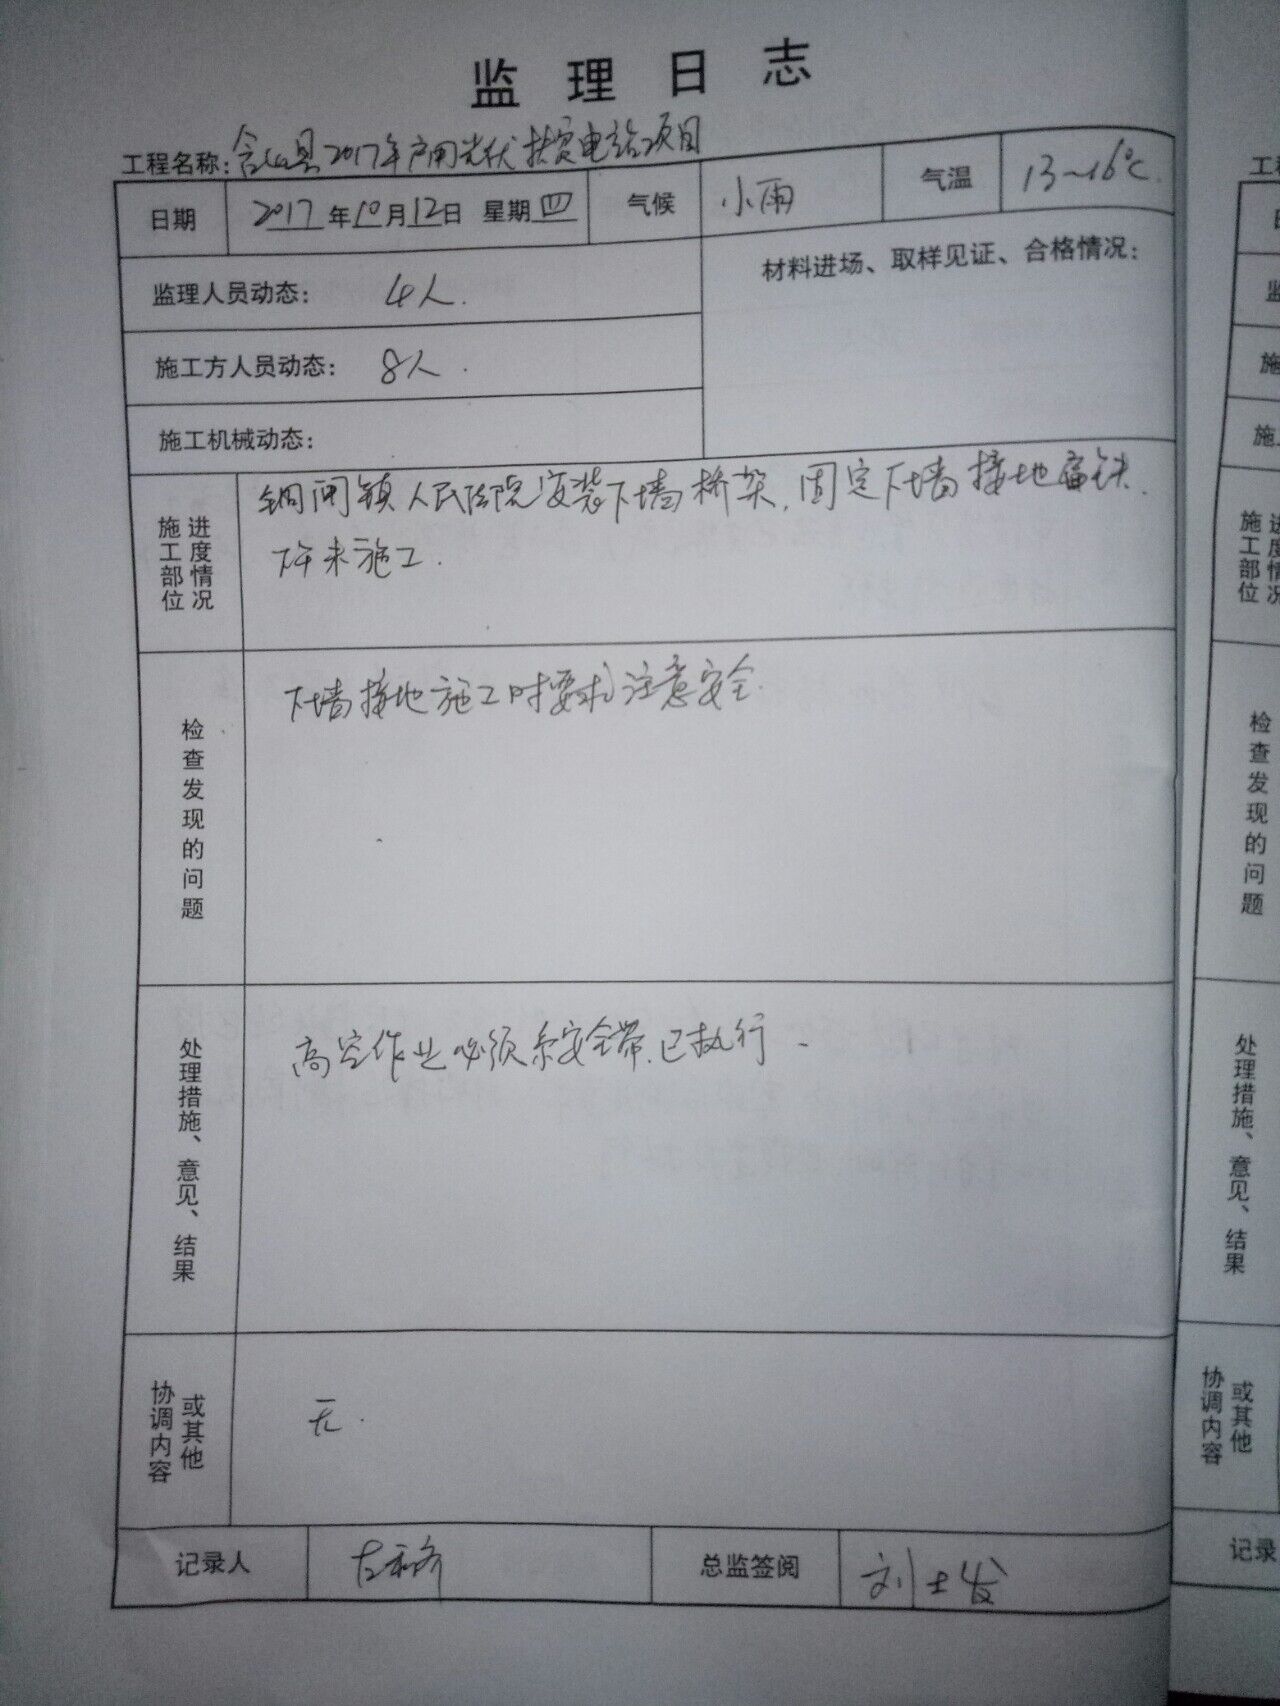 监理日志
工程名称：含山县2017年户用光伏扶贫电站项目
日期 2017年10月12日 星期四 气候 小雨 气温 13~16℃
监理人员动态： 4人.
材料进场、取样见证、合格情况：
施工方人员动态： 8人.
施工机械动态：
施工部位
进度情况
铜闸镇人民法院安装下墙桥架，固定下墙接地扁铁.
下午未施工.
检查发现的问题
下墙接地施工时要求注意安全.
处理措施、意见、结果
高空作业必须系安全带.已执行.
协调内容
或其他
无.
记录人 总监签阅 刘士发
工
日
监
施
施
施工部位
进度情况
检查发现的问题
处理措施、意见、结果
协调内容
或其他
记录